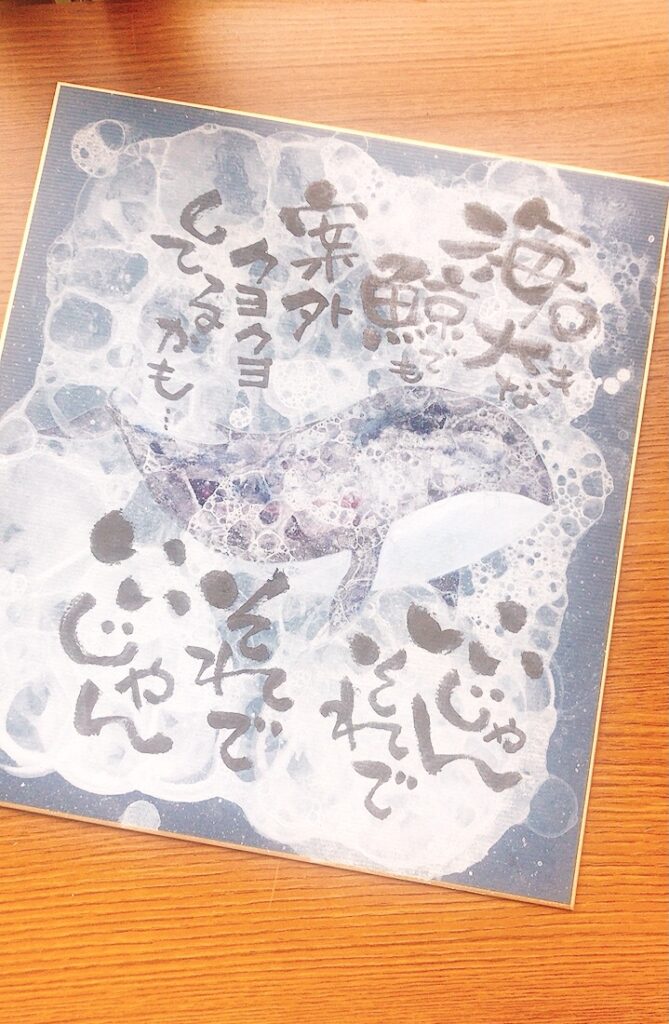 海の大きな
鯨でも
案外
クヨクヨ
してるかも…
いいじゃん
それで
それで
いいじゃん